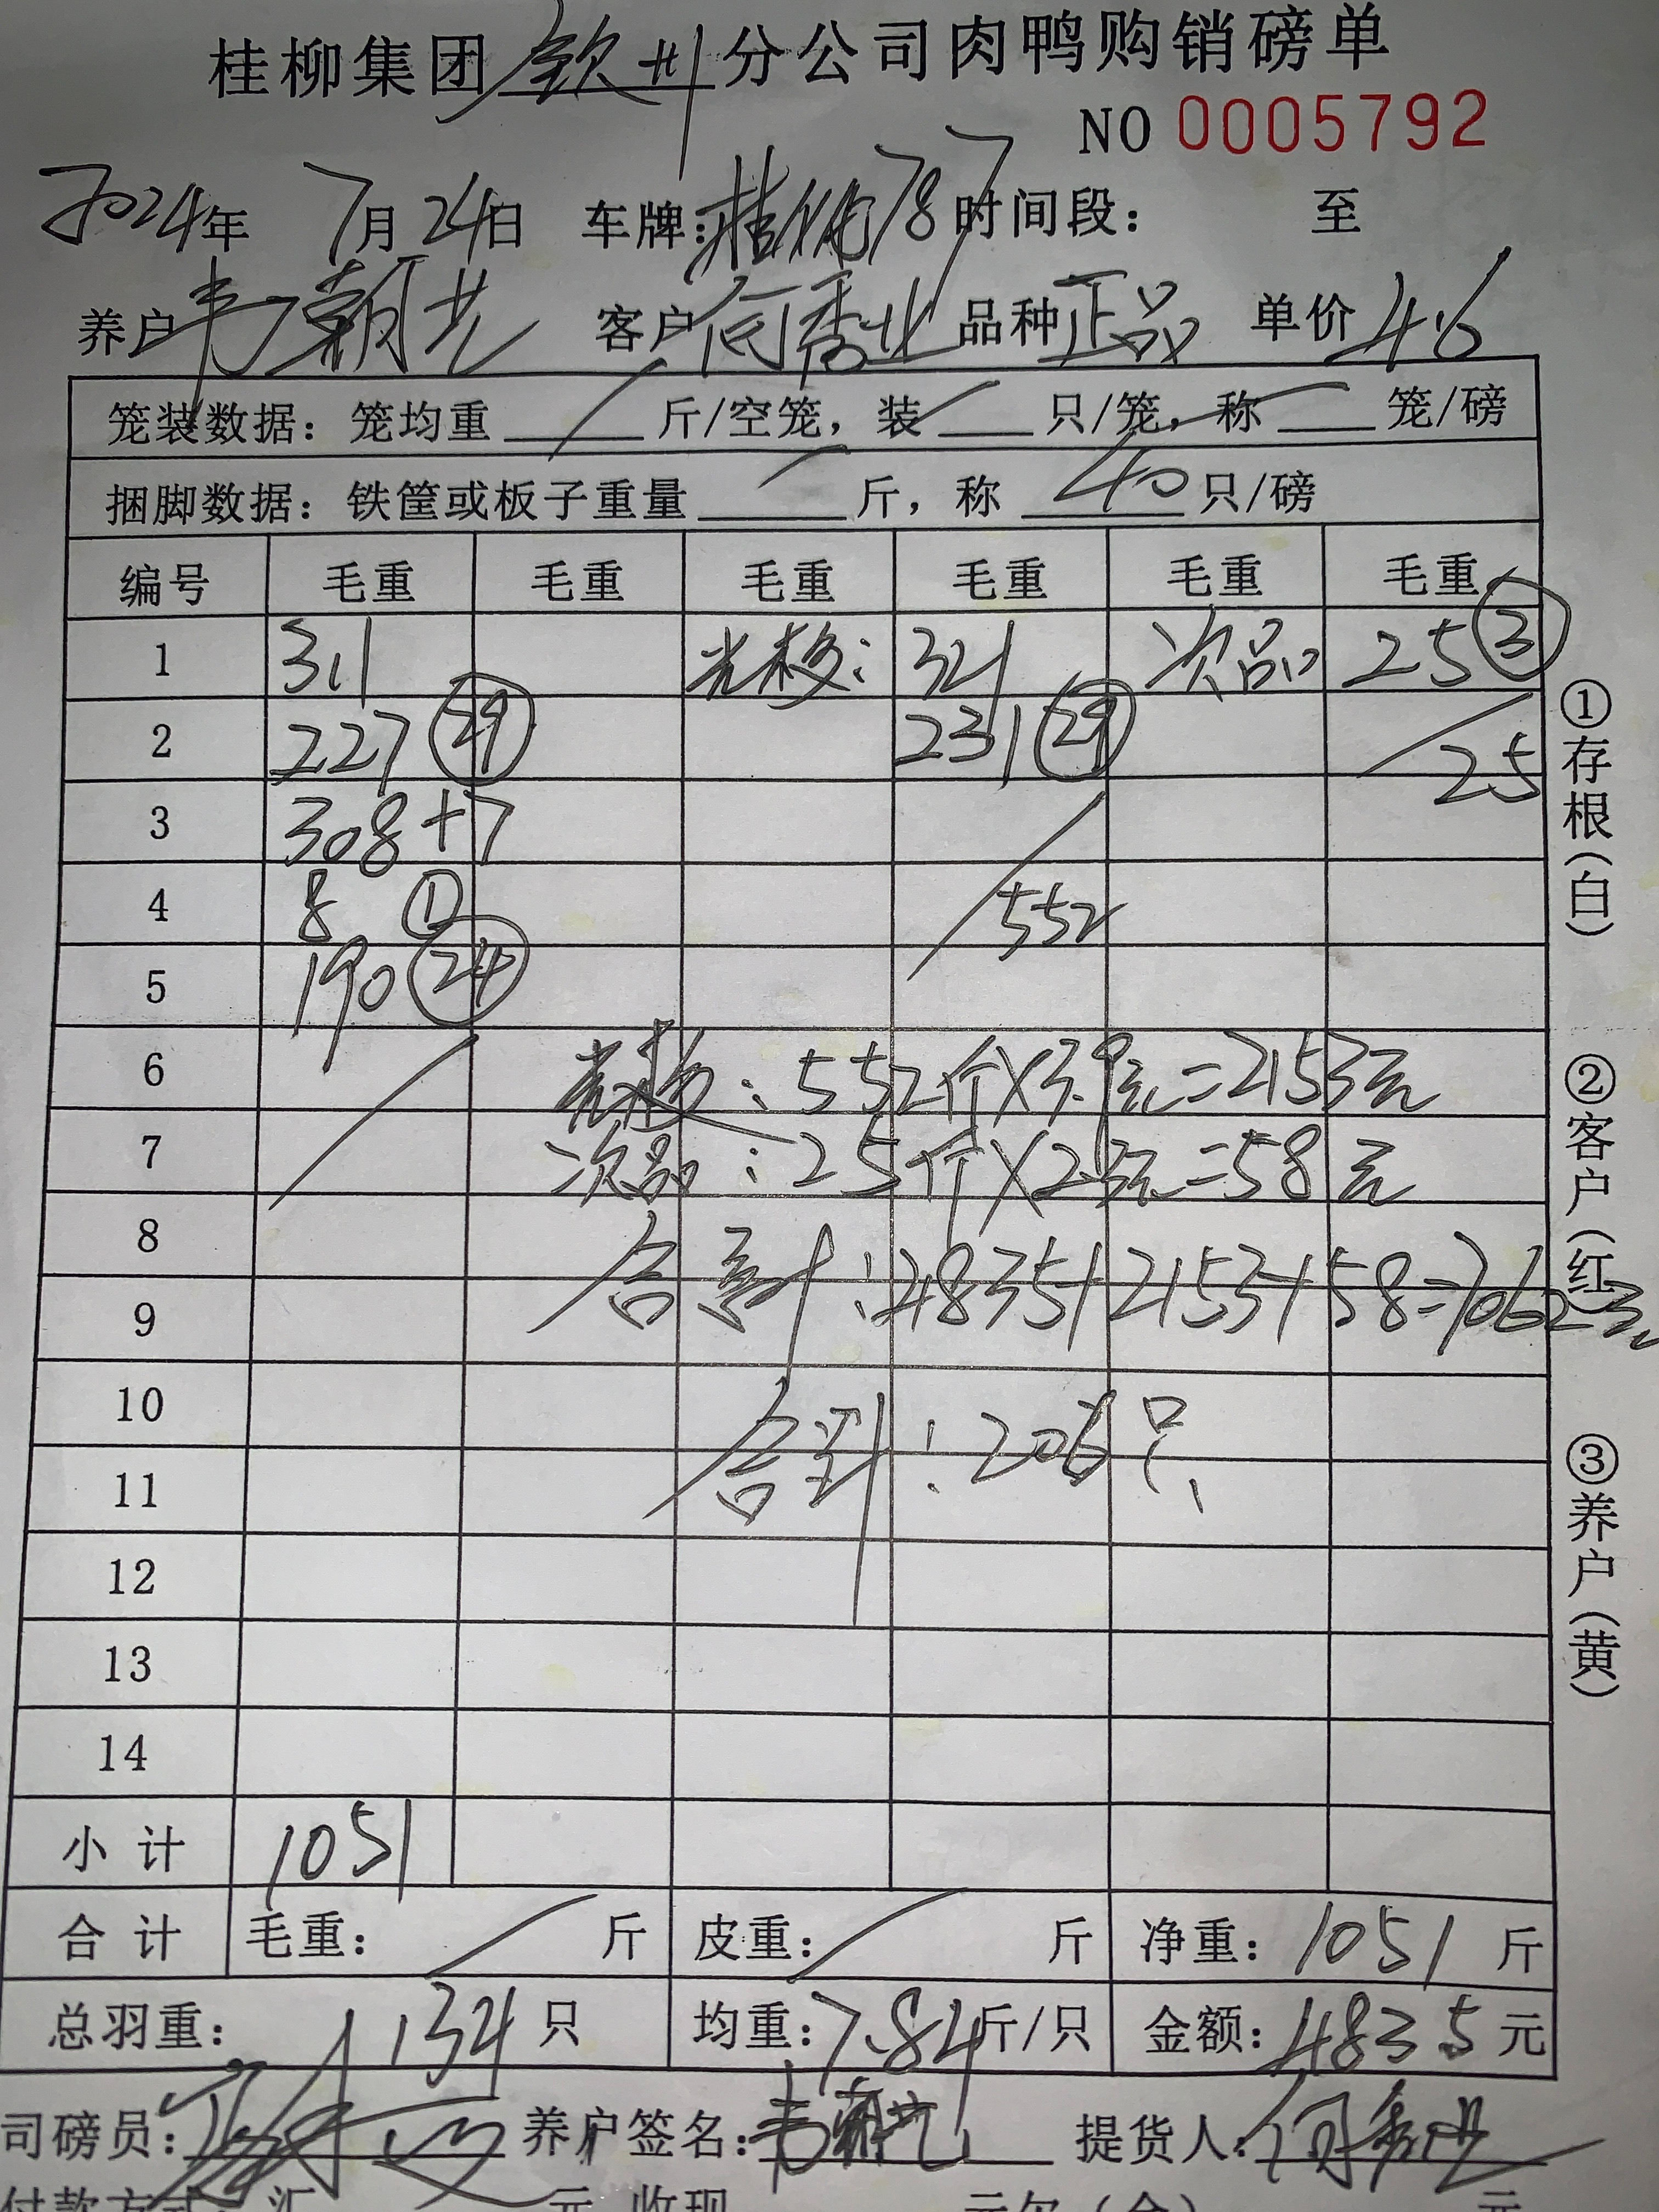 桂柳集团钦州分公司肉鸭购销磅单
NO 0005792
2024年 7月24日 车牌: 787 时间段: 至
养户 韦朝艺 客户 何秀业 品种 正品 单价 4.6
笼装数据: 笼均重 斤/空笼, 装 只/笼, 称 笼/磅
捆脚数据: 铁筐或板子重量 斤, 称 40 只/磅
编号 毛重 毛重 毛重 毛重 毛重 毛重
1 311 321 次品 25 ③
2 227 29 231 29 25
3 308+7
4 8 ① 552
5 190 24
6 : 552斤×3.9元=2153元
7 次品: 25斤×2.3元=58元
8 合计: 4835+2153+58=7062元
9
10 合计: 206只
11
12
13
14
小计 1051
合计 毛重: 斤 皮重: 斤 净重: 1051 斤
总羽重: 134 只 均重: 7.84 斤/只 金额: 4835 元
司磅员: 养户签名: 韦朝艺 提货人: 何秀业
付款方式: 汇 元 收现 元欠(全) 元
①存根(白)
②客户(红)
③养户(黄)